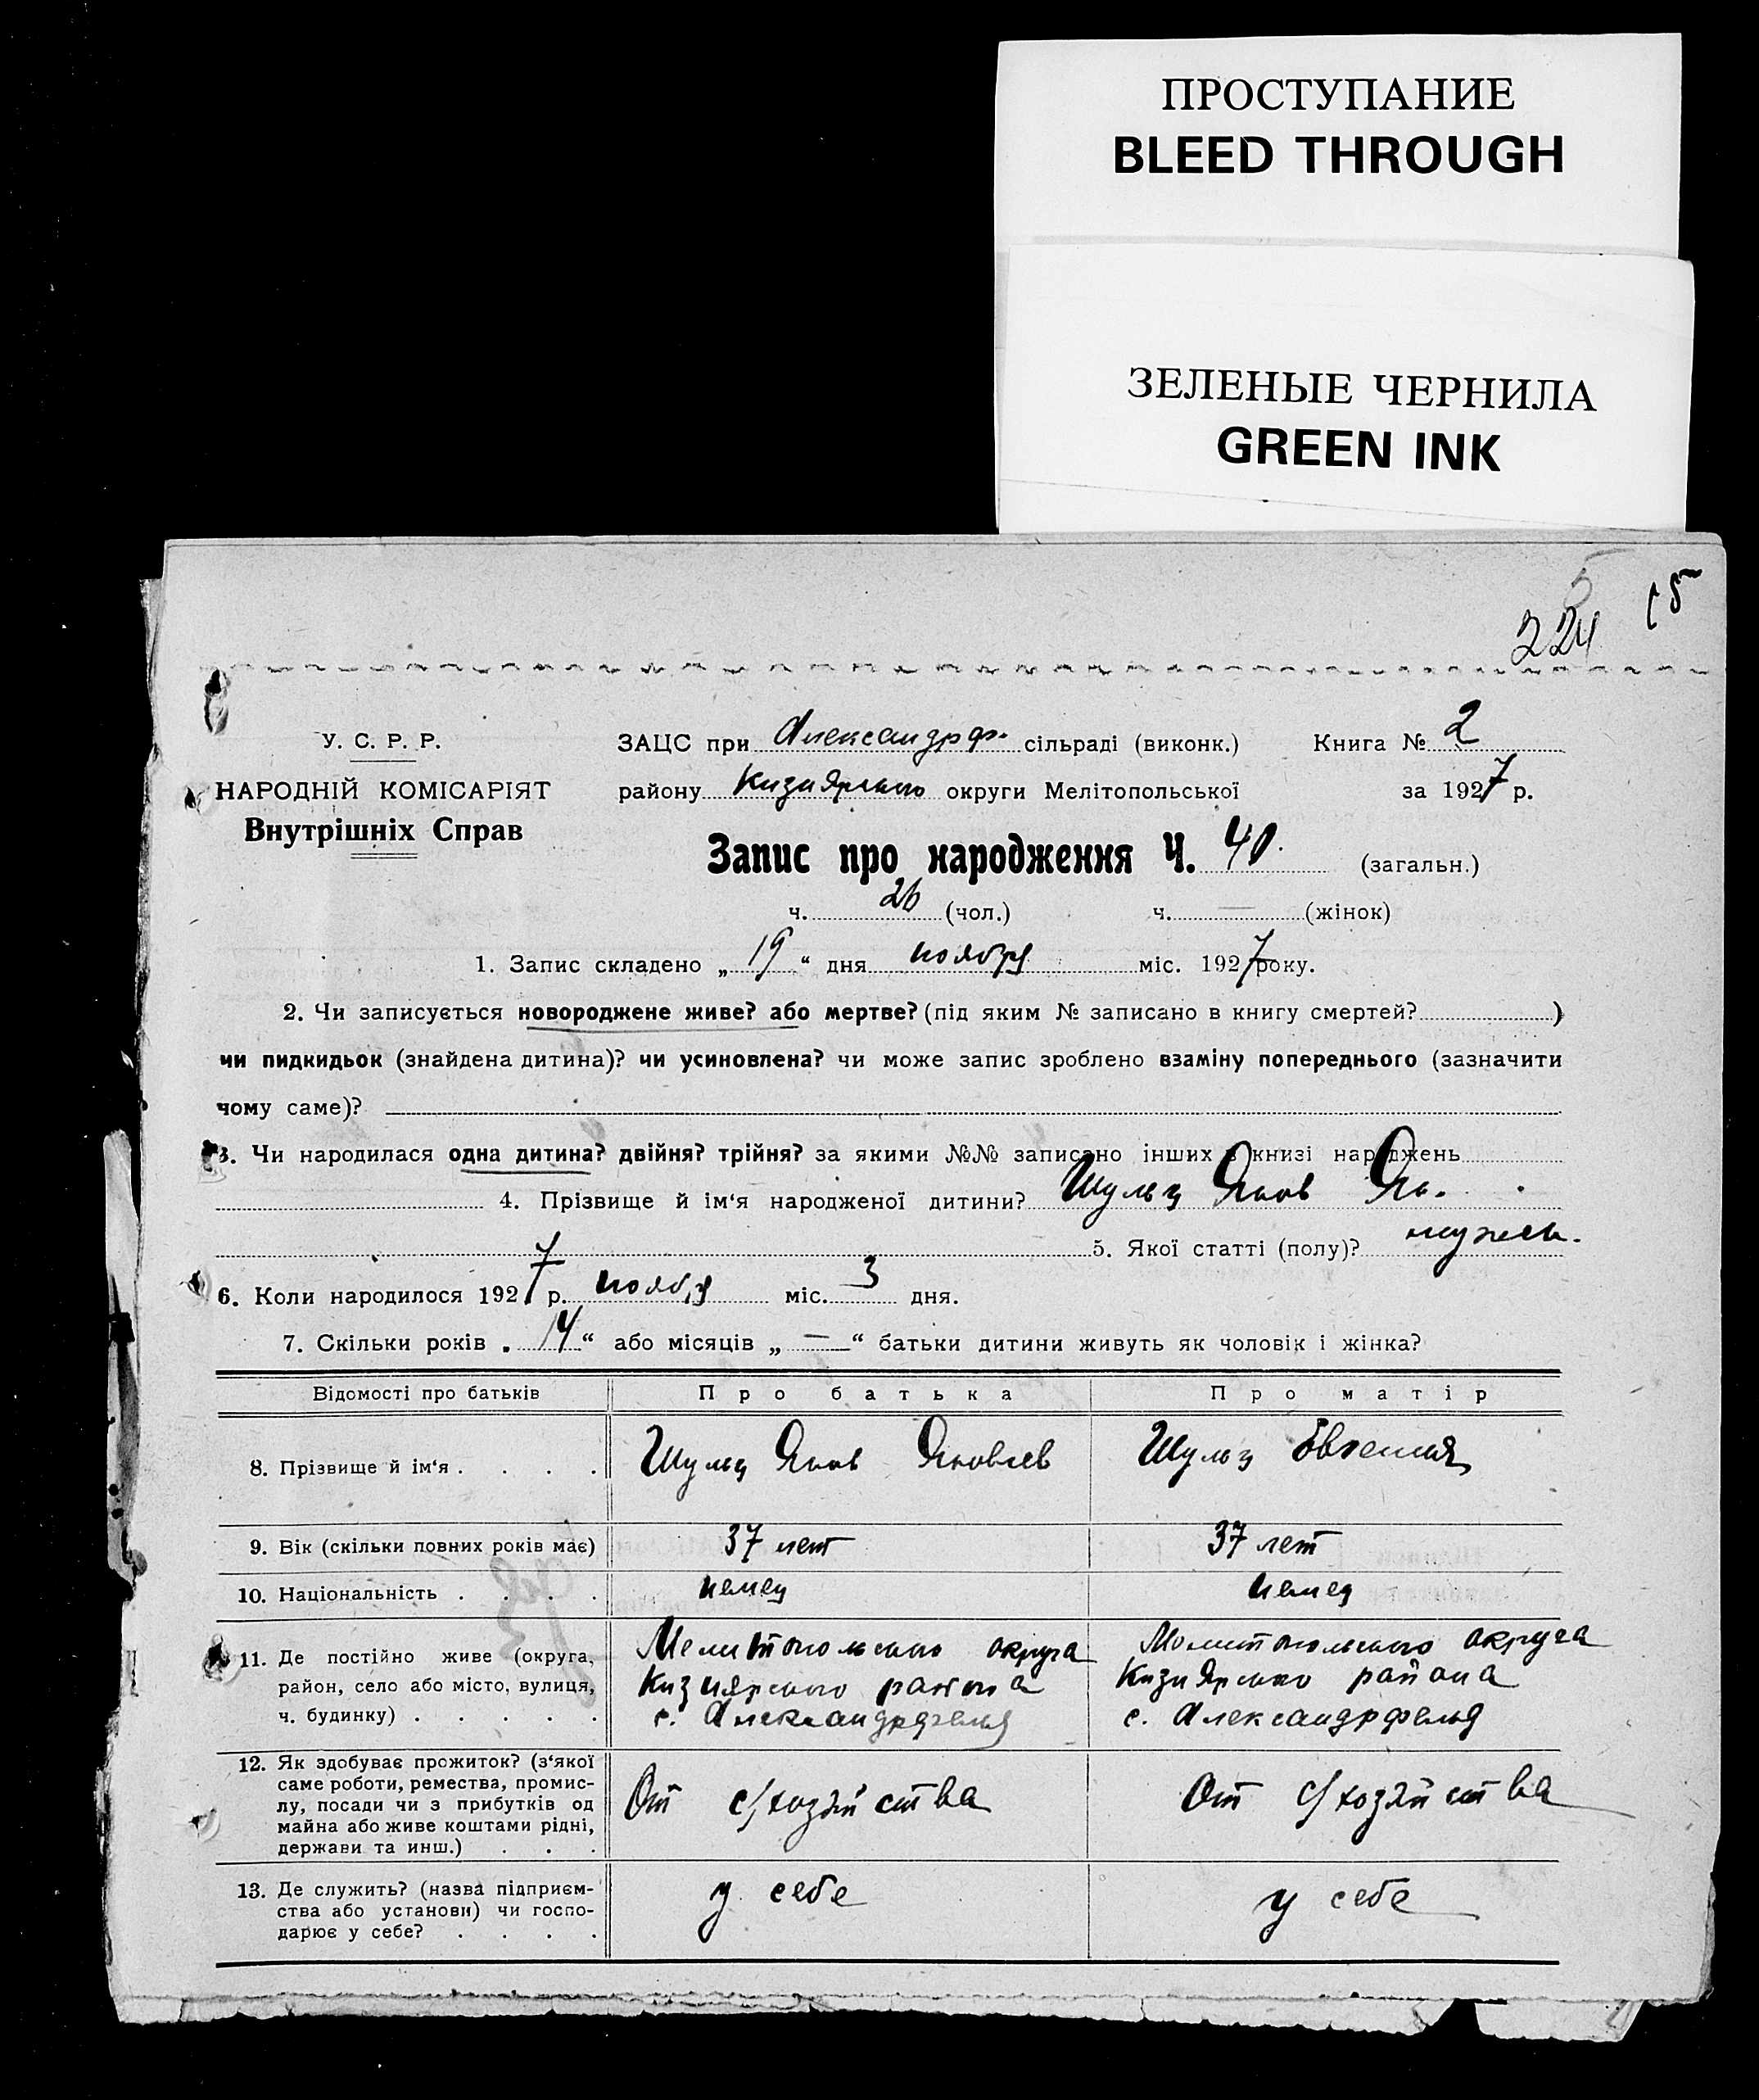 ПРОСТУПАНИЕ
BLEED THROUGH
ЗЕЛЕНЫЕ ЧЕРНИЛА
GREEN INK
15
224
У. С. Р. Р.
НАРОДНІЙ КОМІСАРІЯТ
Внутрішніх Справ
ЗАЦС при Александрф. сільраді (виконк.) Книга № 2
району КизиЯрського округи Мелітопольської за 1927 р.
Запис про народження Ч. 40. (загальн.)
ч. 26 (чол.) ч. — (жінок)
1. Запис складено „ 19 “ дня ноября міс. 1927 року.
2. Чи записується новороджене живе? або мертве? (під яким № записано в книгу смертей? )
чи пидкидьок (знайдена дитина)? чи усиновлена? чи може запис зроблено взаміну попереднього (зазначити
чому саме)?
3. Чи народилася одна дитина? двійня? трійня? за якими №№ записано інших в книзі народжень
4. Прізвище й ім‘я народженої дитини? Шульц Яков Як.
5. Якої статті (полу)? мужск.
6. Коли народилося 1927 р. ноября міс. 3 дня.
7. Скільки років „ 14 “ або місяців „ — “ батьки дитини живуть як чоловік і жінка?
Відомості про батьків Про батька Про матір
8. Прізвище й ім‘я . . . . Шульц Яков Яковлев Шульц Евгения
9. Вік (скільки повних років має) 37 лет 37 лет
10. Національність . . . . немец немец
11. Де постійно живе (округа, Мелитопольского округа Мелитопольского округа
район, село або місто, вулиця, КизиЯрского района КизиЯрского района
ч. будинку) . . . . . с. Александрфельд с. Александрфельд
12. Як здобуває прожиток? (з‘якої
саме роботи, ремества, промис-
лу, посади чи з прибутків од От с/хозяйства От с/хозяйства
майна або живе коштами рідні,
держави та инш.) . . .
13. Де служить? (назва підприєм- у себе у себе
ства або установи) чи госпо-
дарює у себе? . . . .